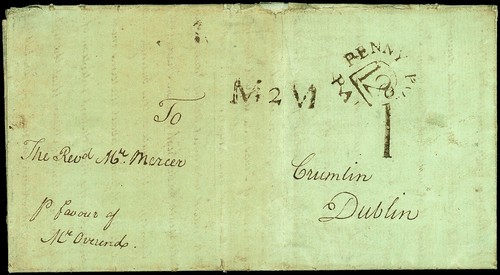 PENNY
PA
12
M 2 M
1
To
The Revd Mr. Mercer
Crumlin
Dublin
P favour of
Mr. Overend.